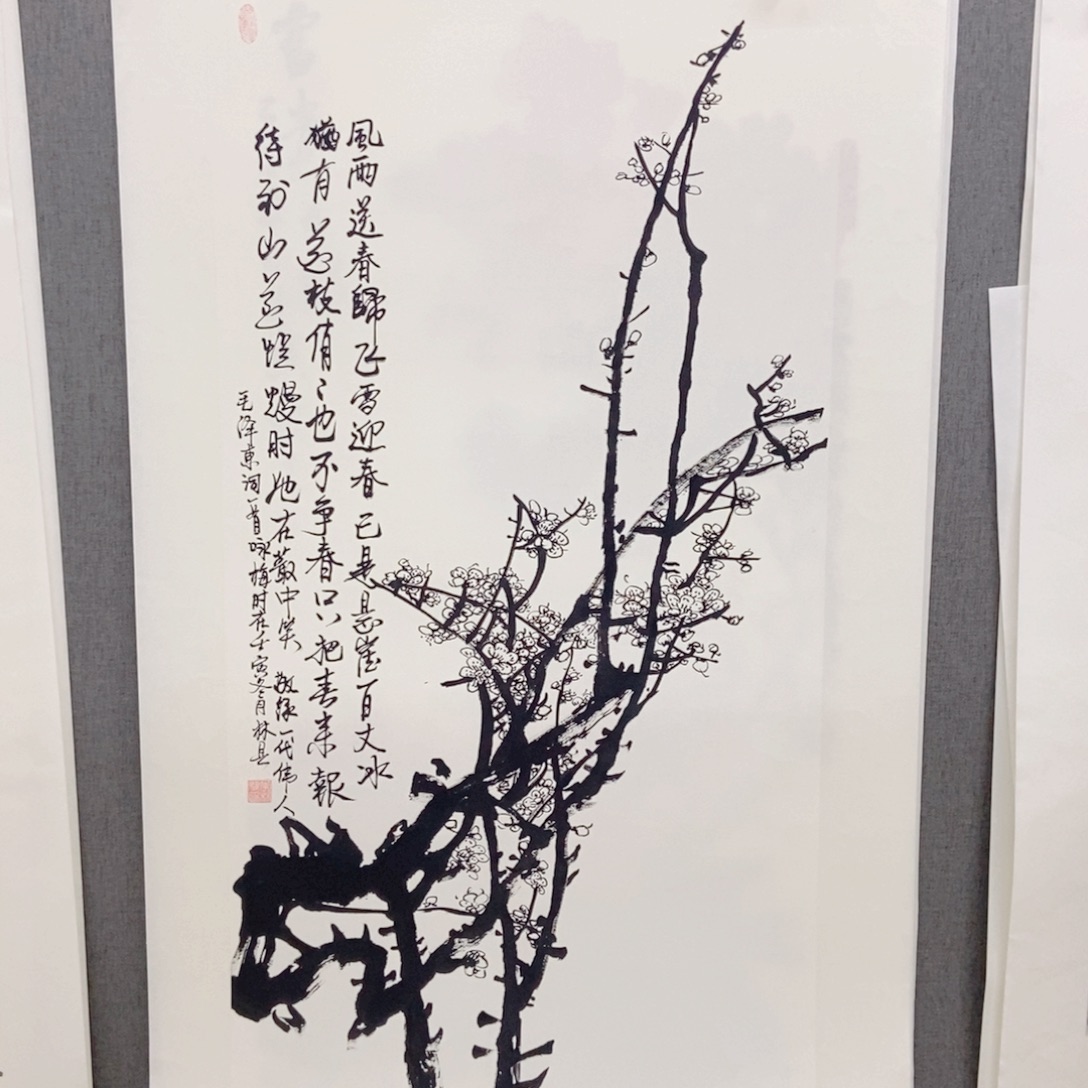 風雨送春歸飞雪迎春已是悬崖百丈冰
猶有花枝俏〻也不争春只把春来報
待到山花烂熳时她在叢中笑 敬録一代伟人
毛泽東词一首咏梅时在壬寅冬月林县